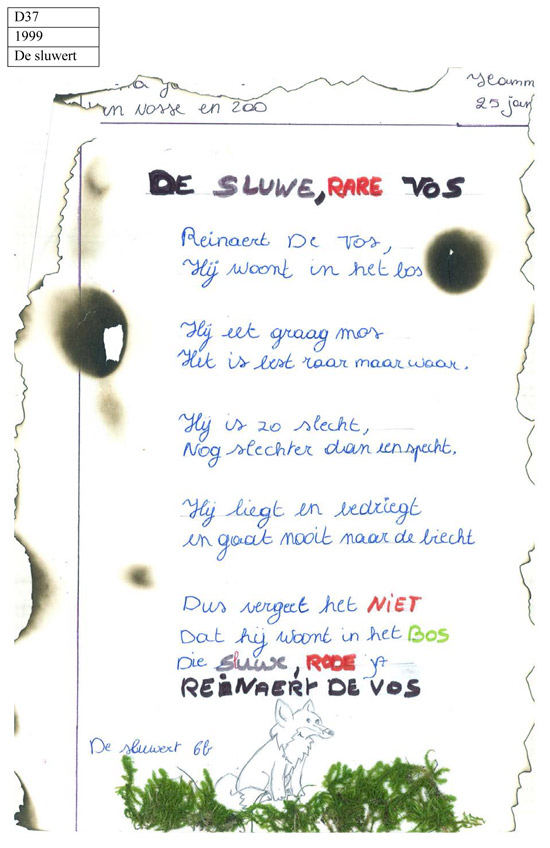 D37
1999
De sluwert
25 jan
en 200
DE SLUWE, RARE VOS
Reinaert De Vos,
Hij woont in het bos
Hij eet graag mos
Het is best raar maar waar.
Hij is zo slecht,
Nog slechter dan een specht.
Hij liegt en bedriegt
en gaat nooit naar de biecht
Dus vergeet het NIET
Dat hij woont in het BOS
Die SLUWE, RODE
REINAERT DE VOS
De sluwert 6b